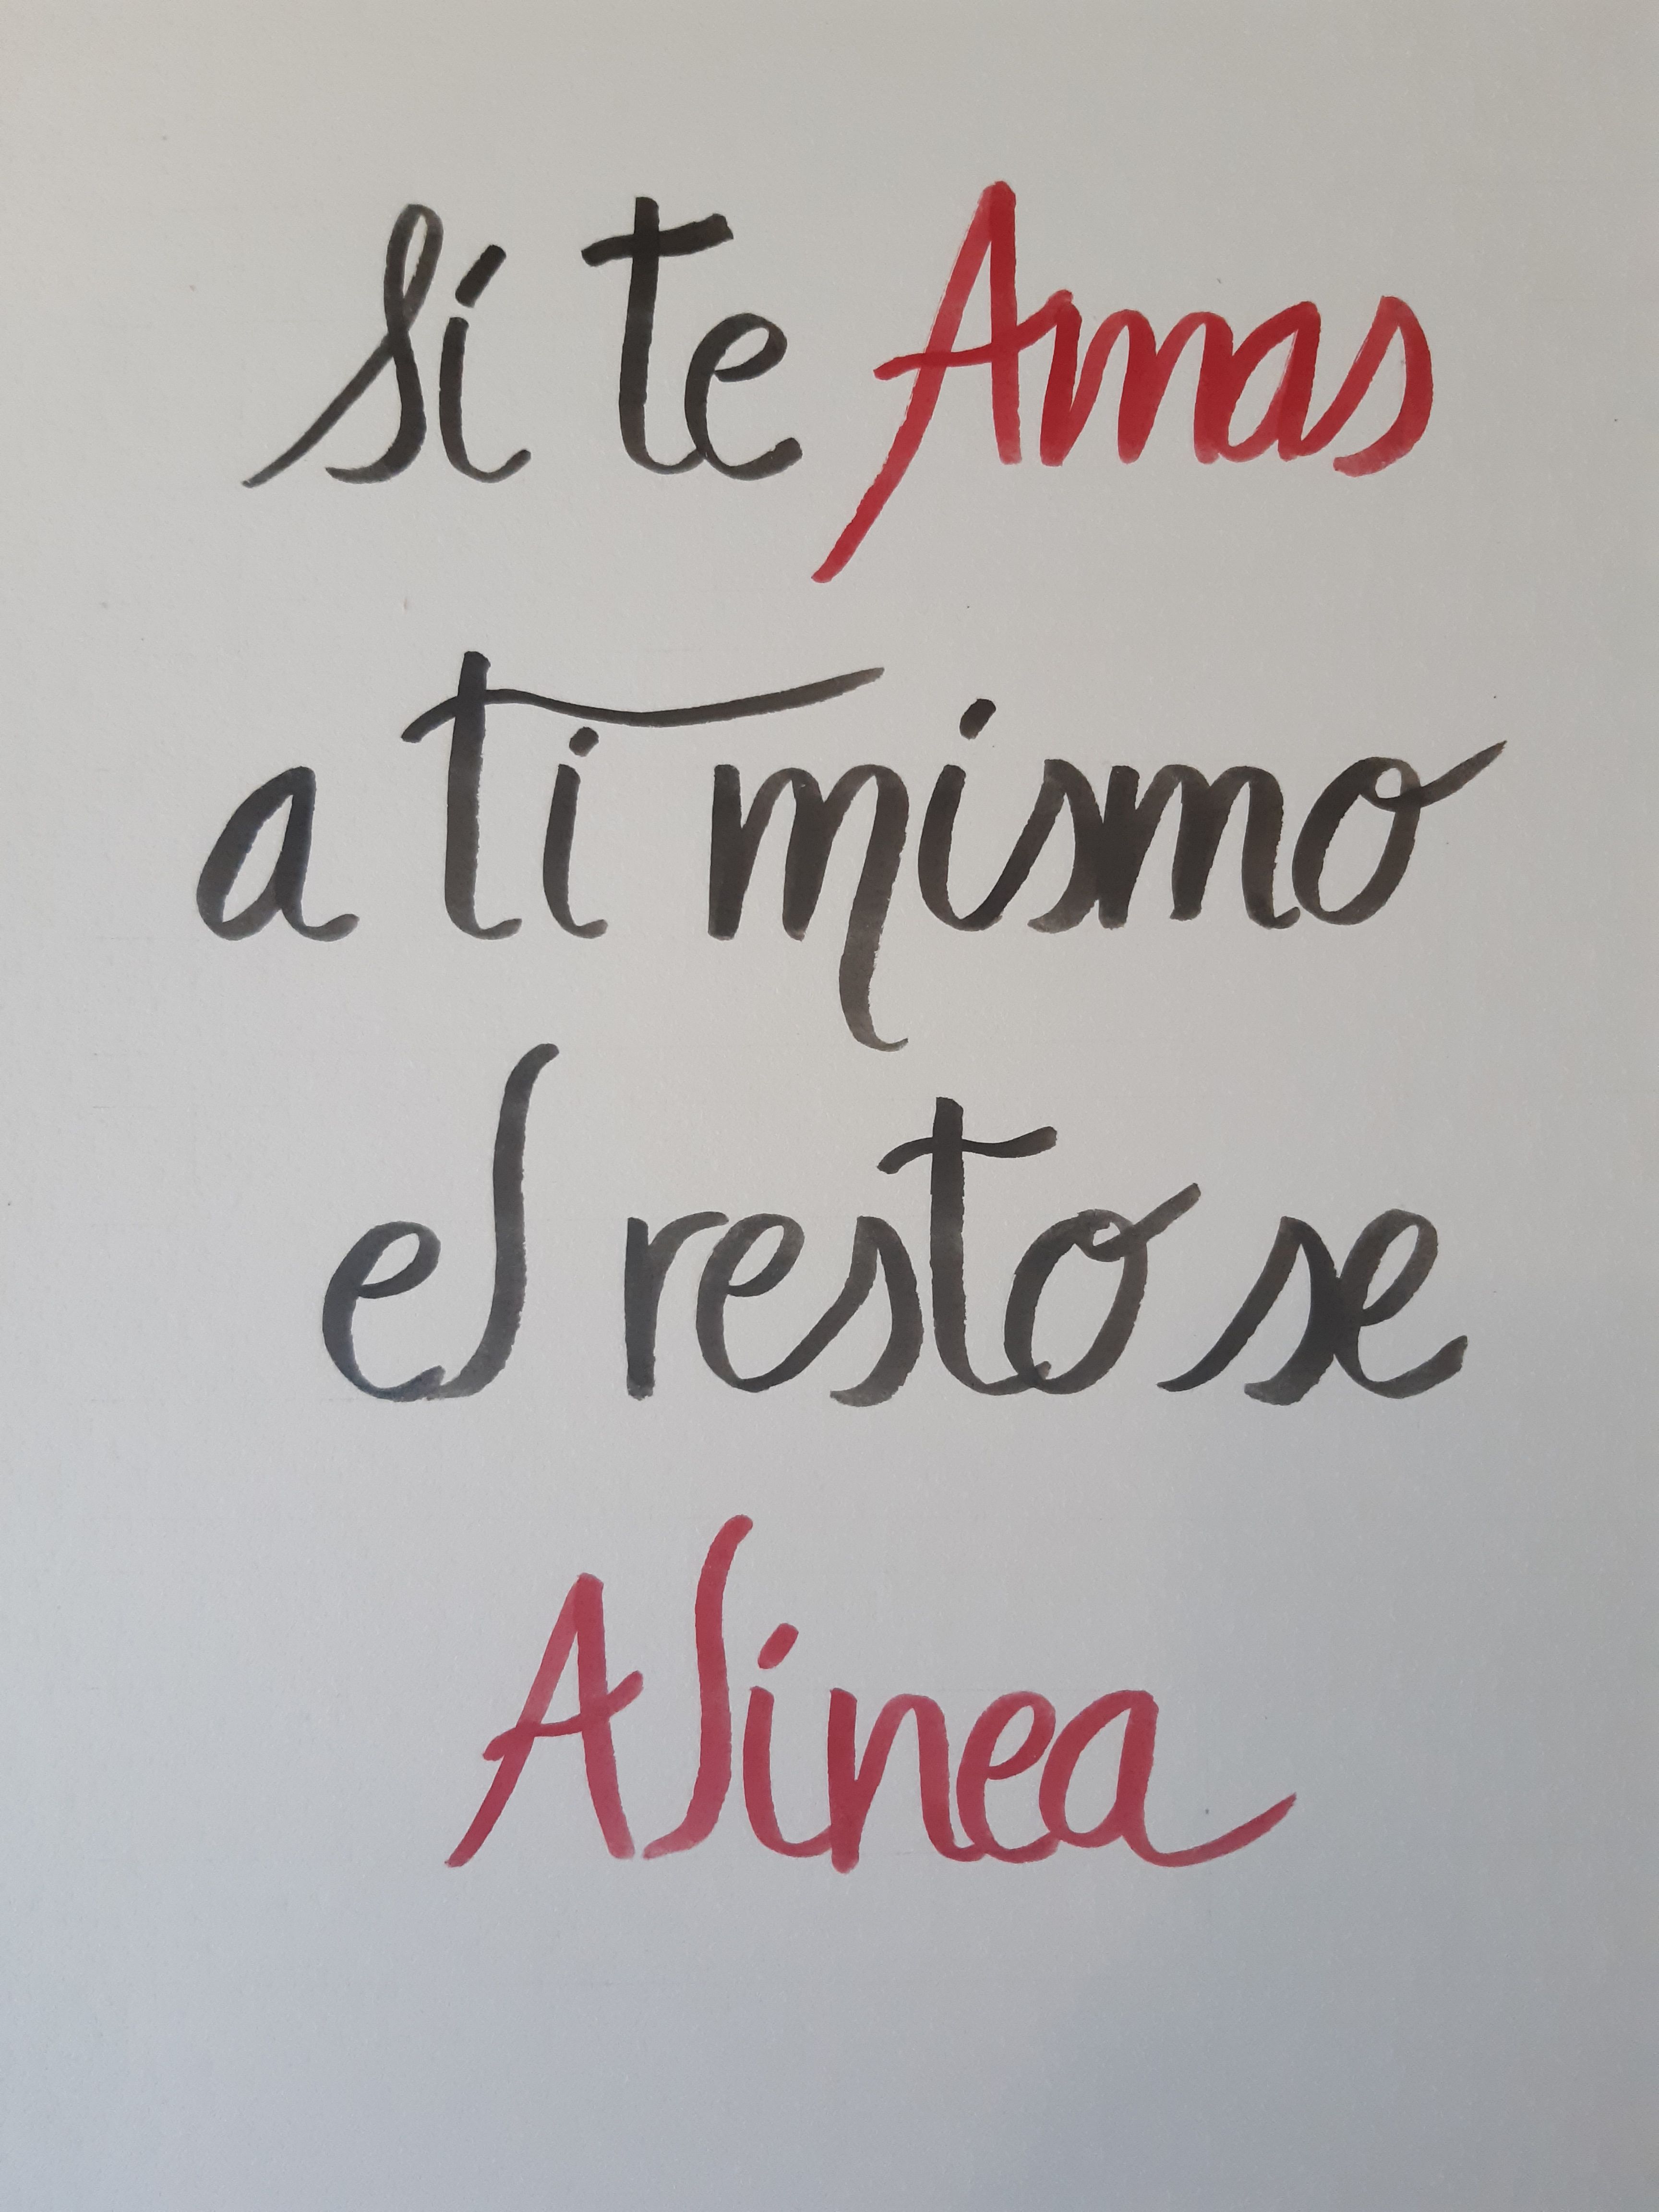 Si te Amas
a ti mismo
el resto se
Alinea